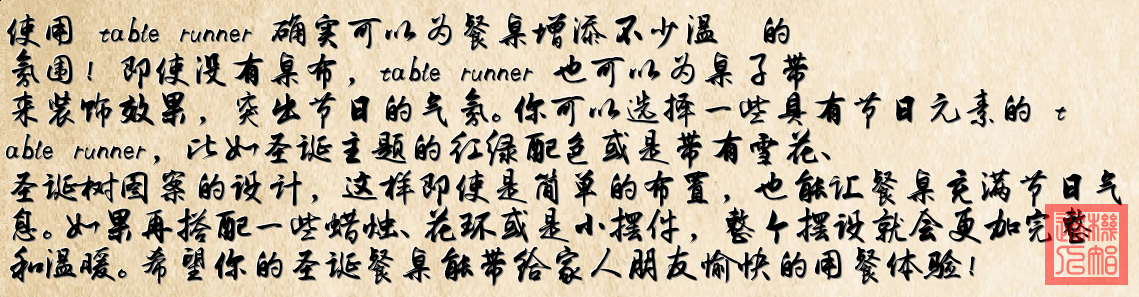 使用 table runner 确实可以为餐桌增添不少温 的
氛围！即使没有桌布，table runner 也可以为桌子带
来装饰效果，突出节日的气氛。你可以选择一些具有节日元素的 t
able runner，比如圣诞主题的红绿配色或是带有雪花、
圣诞树图案的设计，这样即使是简单的布置，也能让餐桌充满节日气
息。如果再搭配一些蜡烛、花环或是小摆件，整个摆设就会更加完整
和温暖。希望你的圣诞餐桌能带给家人朋友愉快的用餐体验！